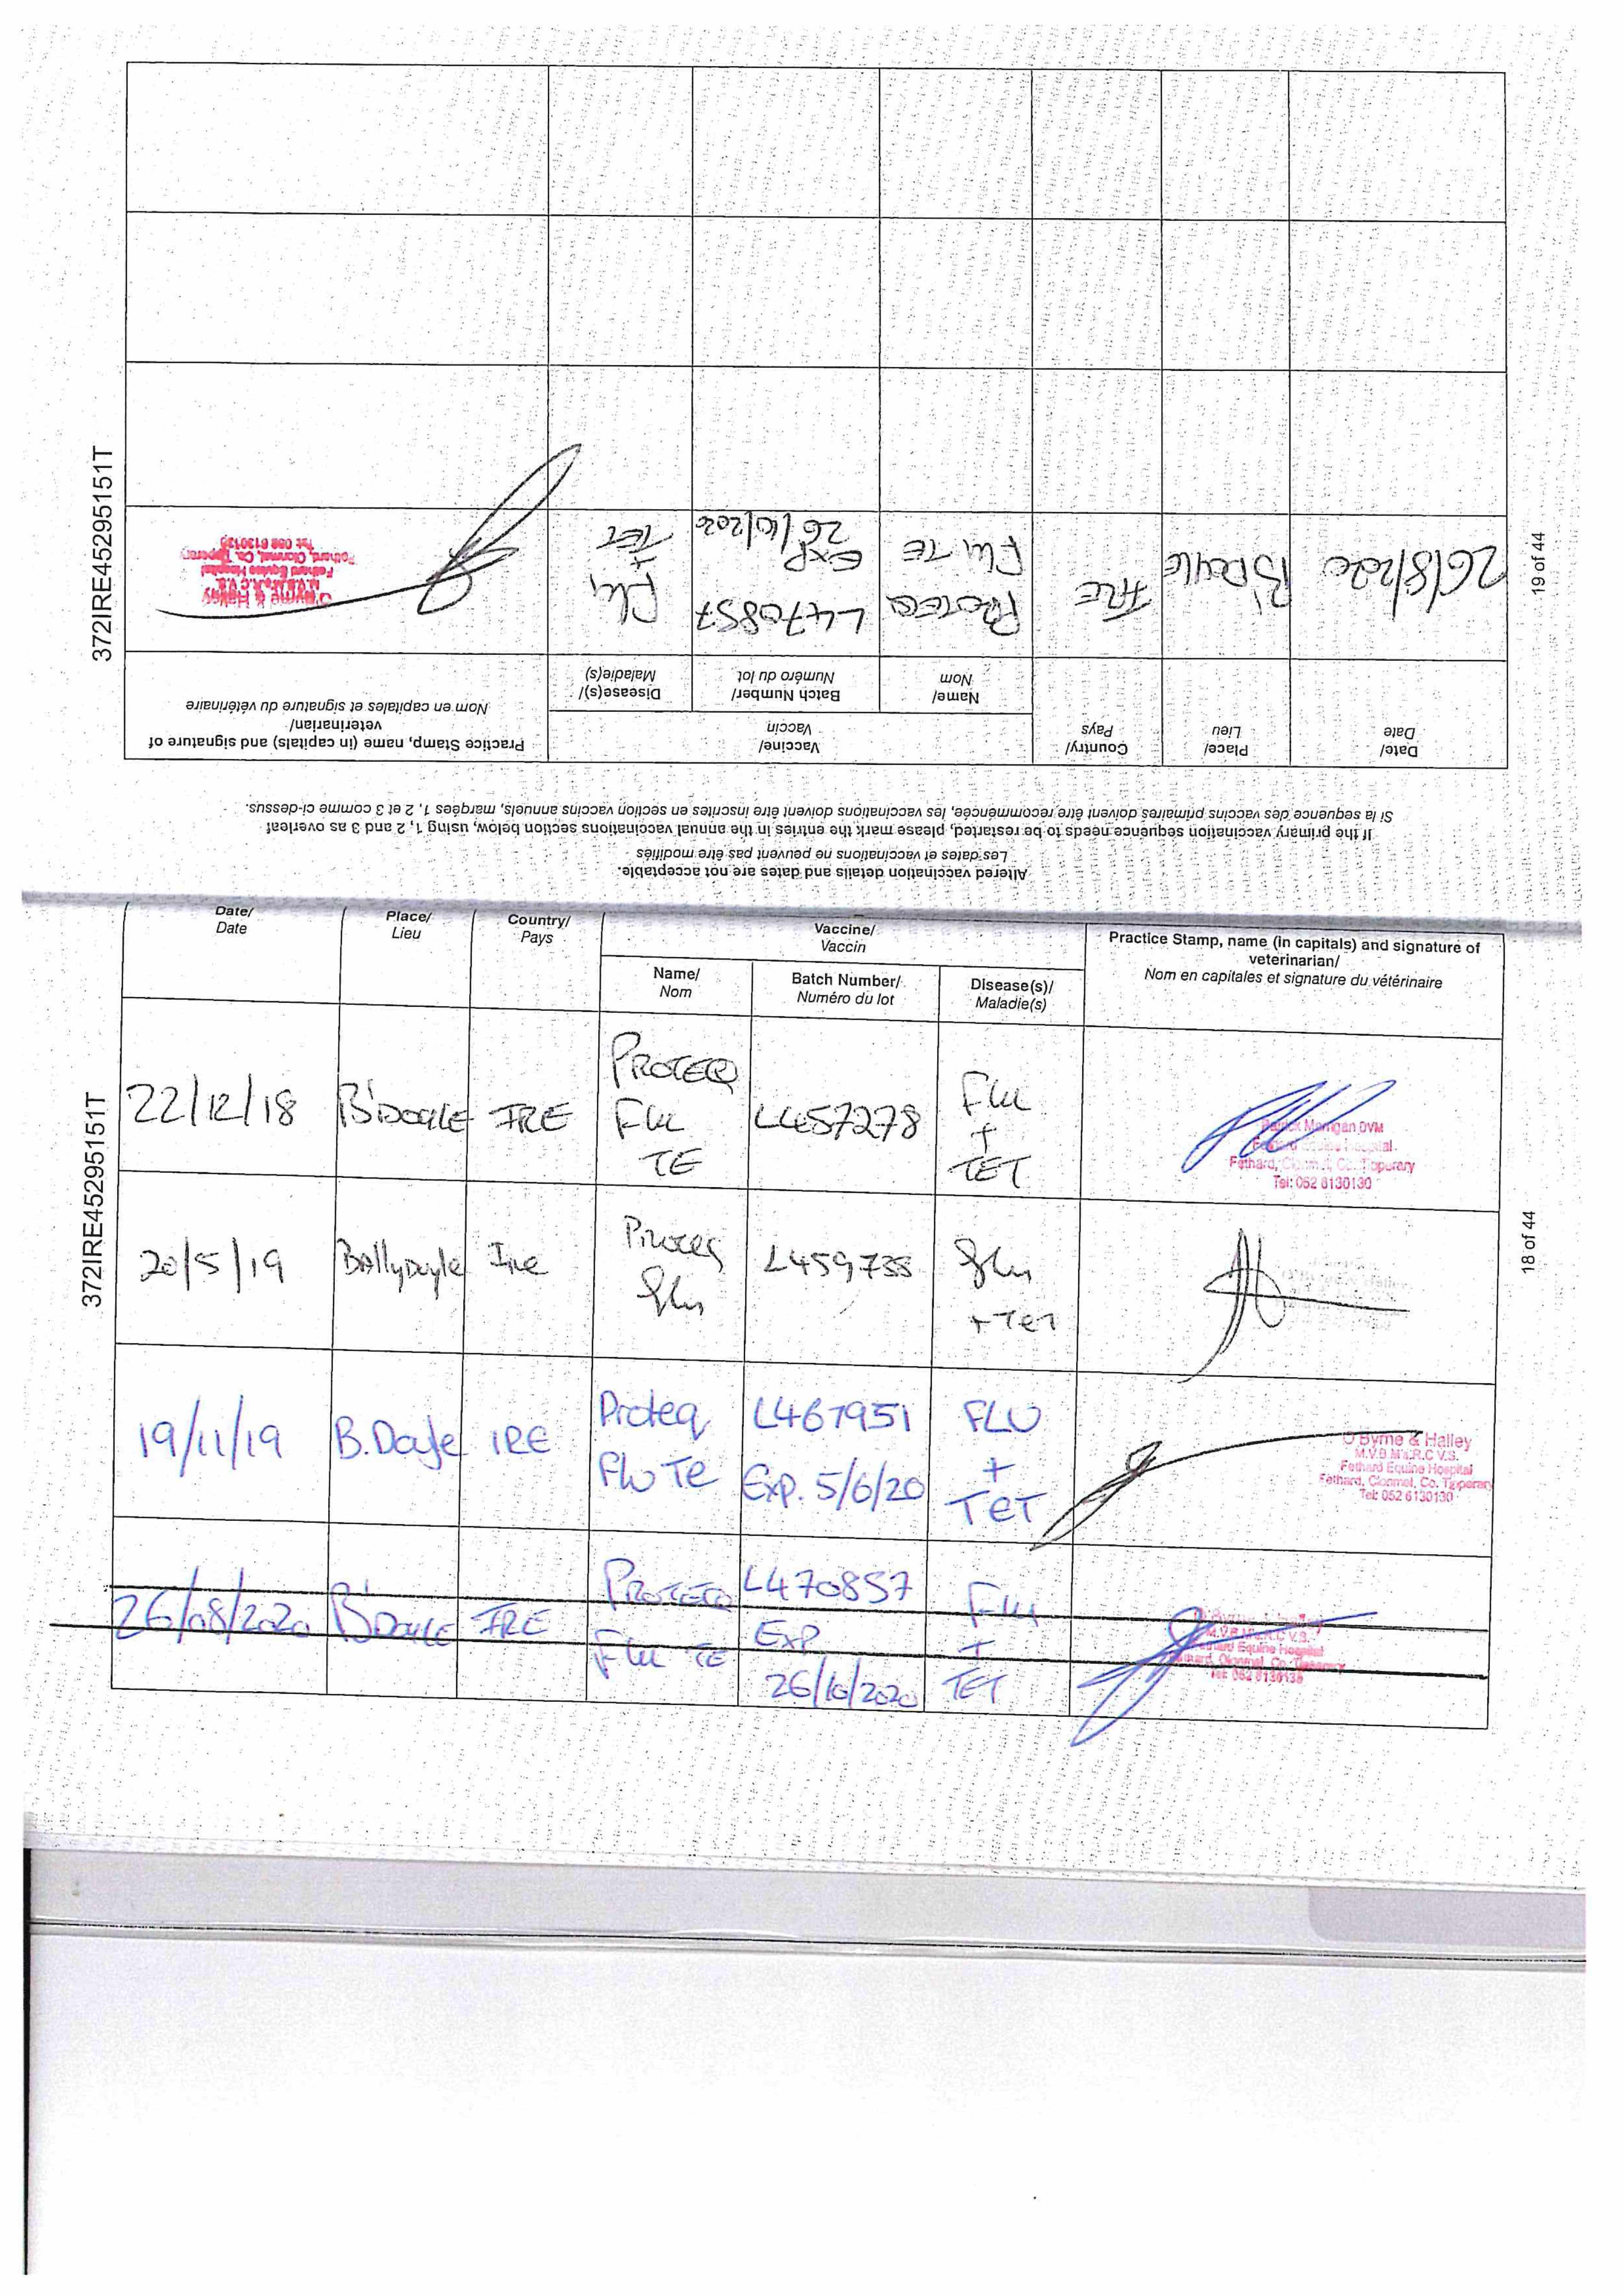 Altered vaccination details and dates are not acceptable.
Les dates et vaccinations ne peuvent pas être modifiés
If the primary vaccination sequence needs to be restarted, please mark the entries in the annual vaccinations section below, using 1, 2 and 3 as overleaf
Si la sequence des vaccins primaires doivent être recommencée, les vaccinations doivent être inscrites en section vaccins annuels, marqées 1, 2 et 3 comme ci-dessus.
Date/ Place/ Country/ Vaccine/ Practice Stamp, name (in capitals) and signature of
Date Lieu Pays Vaccin veterinarian/
Name/ Batch Number/ Disease(s)/ Nom en capitales et signature du vétérinaire
Nom Numéro du lot Maladie(s)
26/8/2020 B'Doyle IRE PROTEQ L470857 Flu
Flu TE EXP + TET
26/10/2020
O'Byrne & Halley
M.V.B. M's.R.C.V.S.
Fethard Equine Hospital
Fethard, Clonmel, Co. Tipperary
Tel: 052 6130130
372IRE45295151T
19 of 44
Date/ Place/ Country/ Vaccine/ Practice Stamp, name (in capitals) and signature of
Date Lieu Pays Vaccin veterinarian/
Name/ Batch Number/ Disease(s)/ Nom en capitales et signature du vétérinaire
Nom Numéro du lot Maladie(s)
22/12/18 B'DOYLE IRE PROTEQ L457278 Flu
Flu +
TE TET
Morrigan DVM
Fethard, Co. Tipperary
Tel: 052 6130130
20/5/19 Ballydoyle Ire Proteq L459735 Flu
Flu + Tet
19/11/19 B.Doyle IRE Proteq L467951 FLU
Flu Te Exp. 5/6/20 +
TeT
O'Byrne & Halley
M.V.B. M's.R.C.V.S.
Fethard Equine Hospital
Fethard, Clonmel, Co. Tipperary
Tel: 052 6130130
26/08/2020 B'Doyle IRE PROTEQ L470857 Flu
Flu TE EXP +
26/10/2020 TET
M.V.B. M's.R.C.V.S.
Fethard Equine Hospital
Fethard, Clonmel, Co. Tipperary
Tel: 052 6130130
372IRE45295151T
18 of 44